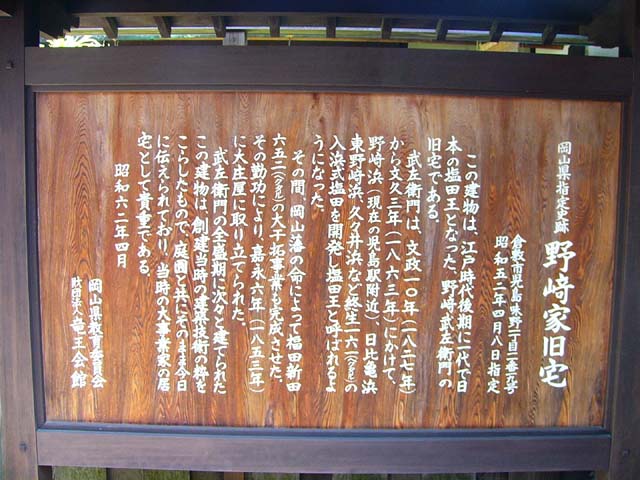 岡山県指定史跡 野﨑家旧宅
倉敷市児島味野一丁目一一番一九号
昭和五二年四月八日指定
この建物は、江戸時代後期に一代で日
本の塩田王となった、野﨑武左衛門の
旧宅である。
武左衛門は、文政一〇年(一八二七年)
から文久三年(一八六三年)にかけて、
野﨑浜(現在の児島駅附近)、日比亀浜
東野﨑浜、久々井浜など終生一六一(ヘクタール)の
入浜式塩田を開発し塩田王と呼ばれるよ
うになった。
その間、岡山藩の命によって福田新田
六五二(ヘクタール)の大干拓事業も完成させた。
その勤功により、嘉永六年(一八五三年)
に大庄屋に取り立てられた。
武左衛門の全盛期に次々と建てられた
この建物は、創建当時の建築技術の粋を
こらしたもので、庭園と共にそのまま今日
に伝えられており、当時の大事業家の居
宅として貴重である。
昭和六二年四月
岡山県教育委員会
財団法人 竜王会館